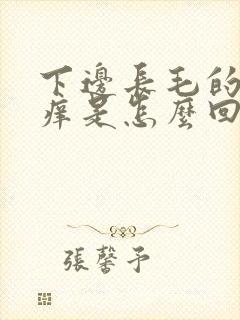 下邊長毛的
癢是怎麼回
張馨予